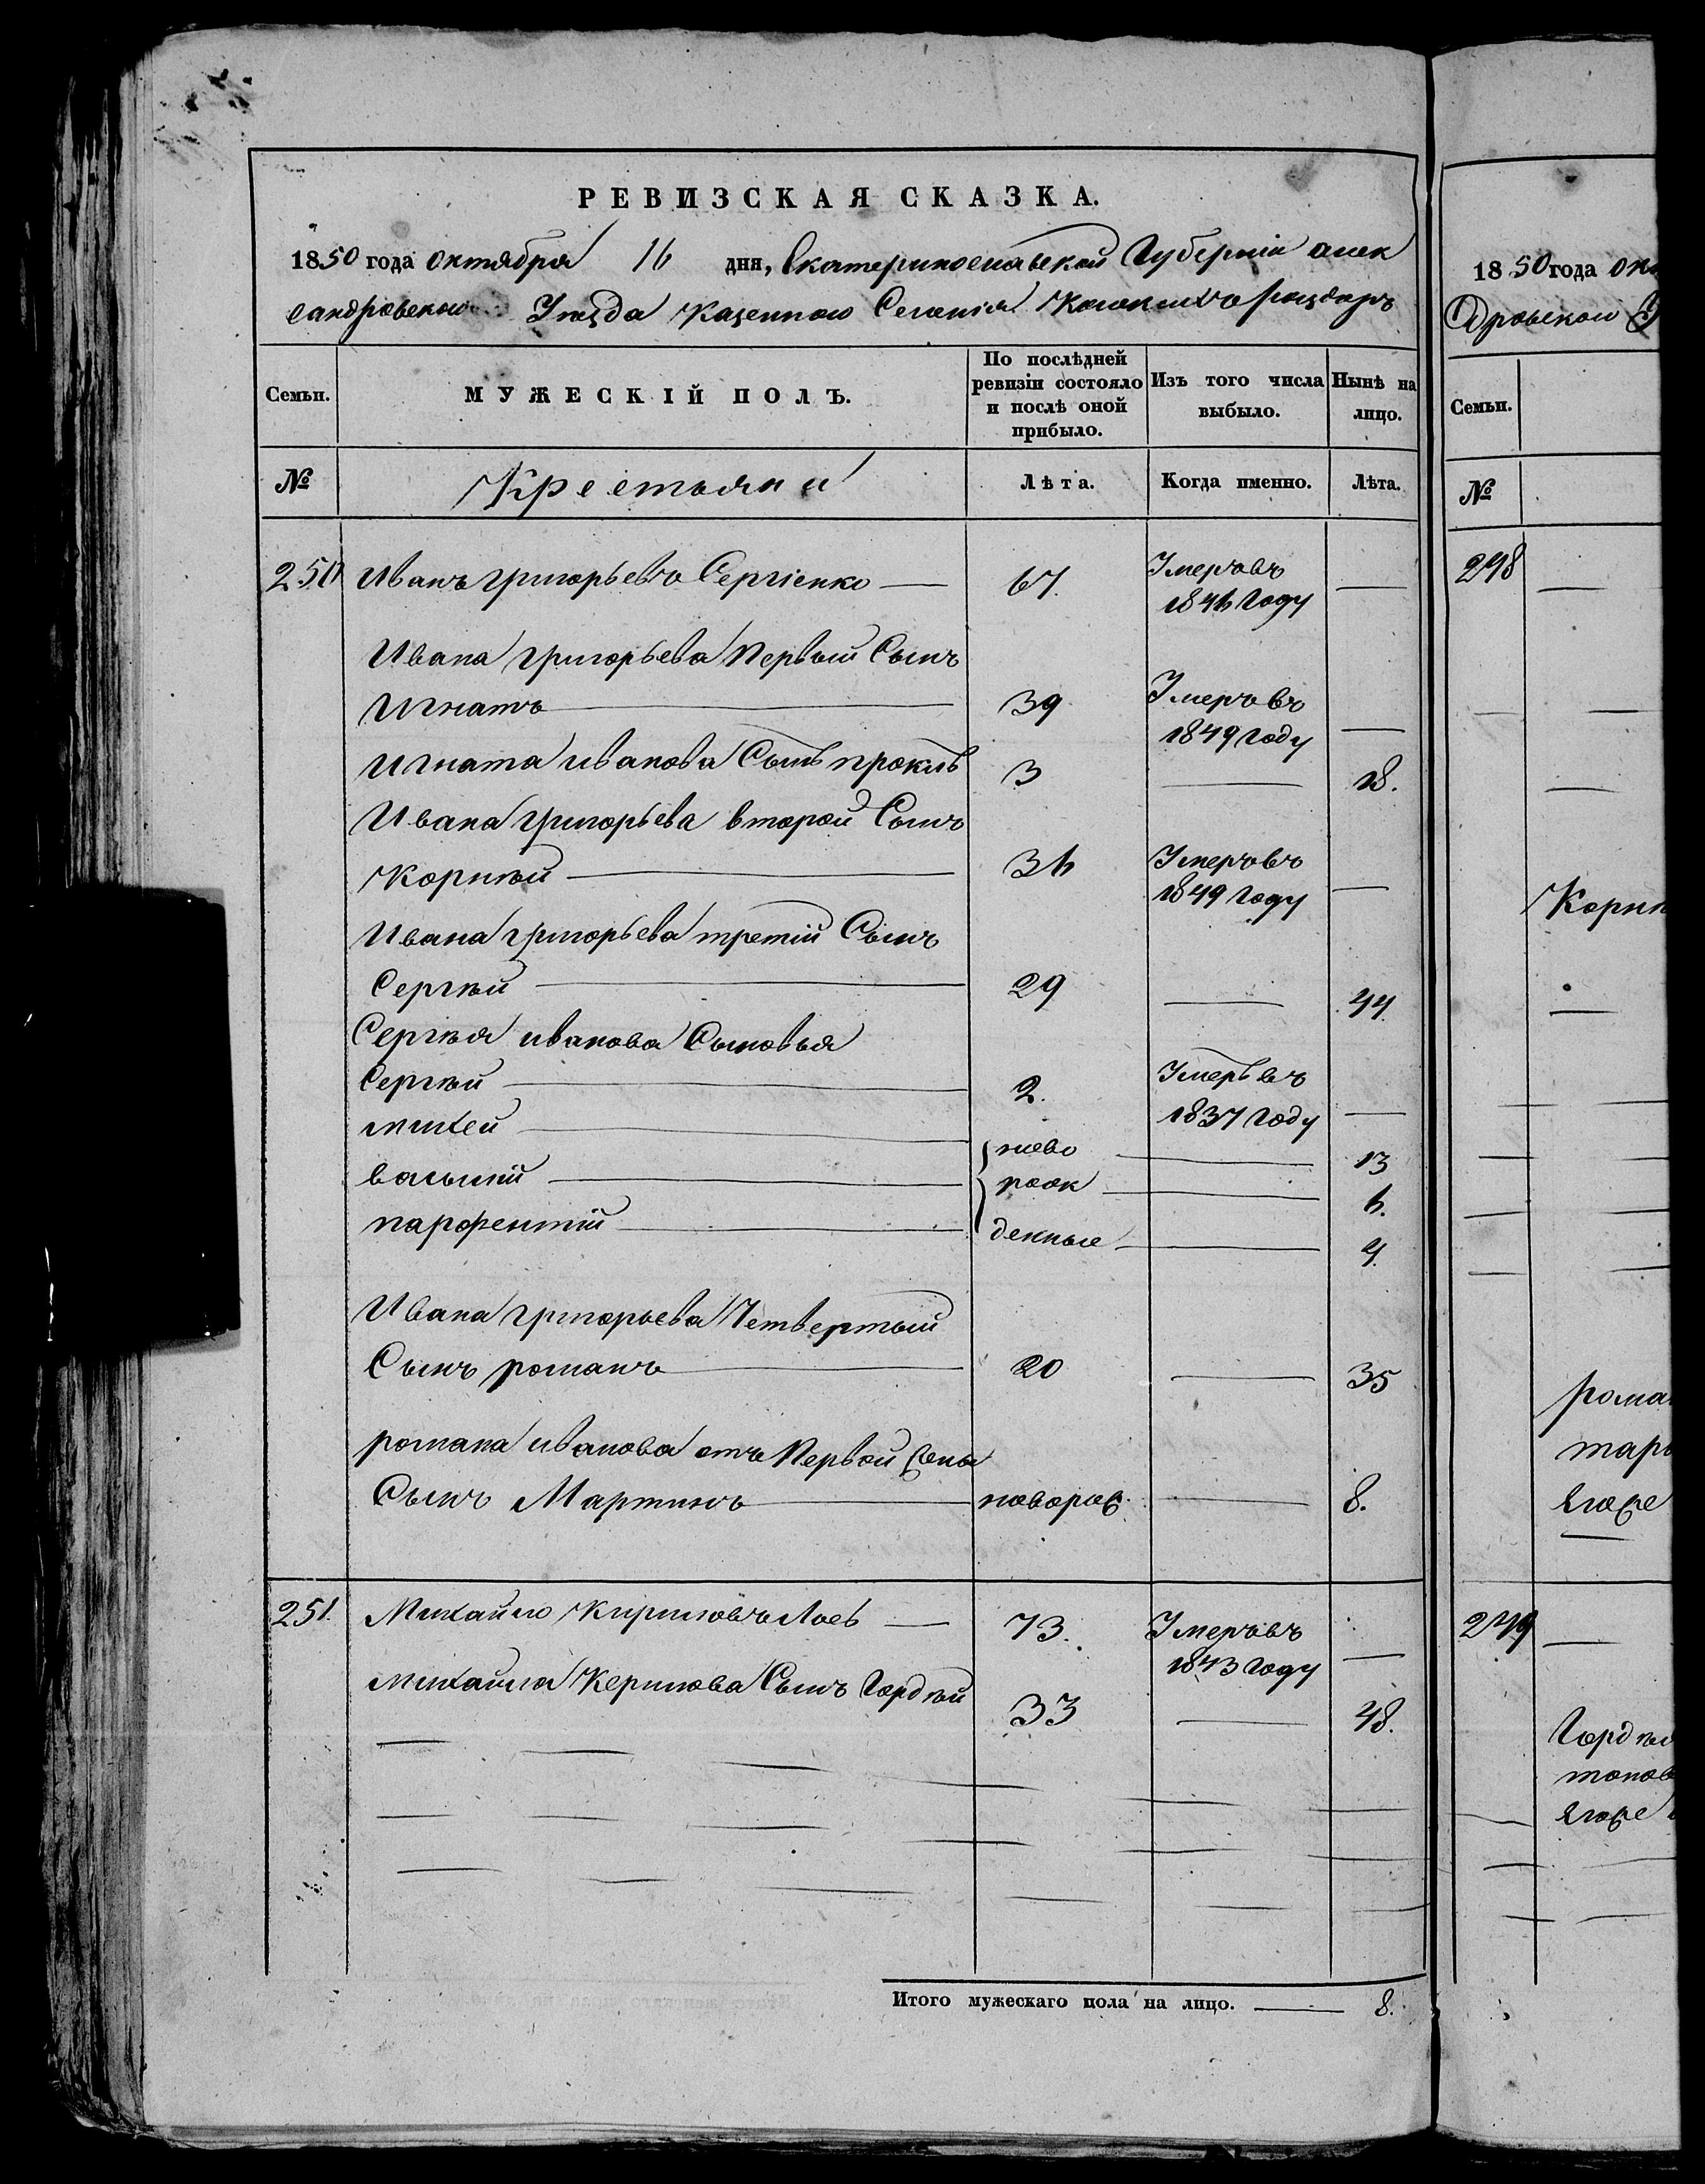 РЕВИЗСКАЯ СКАЗКА.
1850 года октября 16 дня, Екатеринославской Губерніи алек
сандровскаго Уѣзда Казенного Селенія
По послѣдней ревизіи состояло и послѣ оной прибыло.
Изъ того числа выбыло.
Нынѣ на лицо.
Семьи. МУЖЕСКІЙ ПОЛЪ.
№ Крестьяни Лѣта. Когда именно. Лѣта.
250 Иванъ григорьевъ Сергіенко — 67. Умеръ въ 1846 Году —
Ивана григорьева Первый Сынъ
Игнатъ 39 Умеръ въ 1849 году —
Игната иванова Сынъ прокпъ 3 — 18.
Ивана григорьева второй Сынъ
Корнѣй 36 Умеръ въ 1849 году —
Ивана григорьева третій Сынъ
Сергѣй 29 — 44.
Сергѣя иванова Сыновья
Сергѣй 2. Умеръ въ 1837 году —
михей ново — 13
василій рож — 6.
парфентій денные — 4.
Ивана григорьева Четвертый
Сынъ романъ 20 — 35
романа иванова отъ Первой жены
Сынъ Мартинъ новорож. — 8.
251. Михайло Кириловъ Лаев — 73. Умеръ въ 1843 году —
михайла Керилова Сынъ Гордѣй 33 — 48.
Итого мужескаго пола на лицо. — 8.
1850 года ок
дровской У
Семьи.
№
298
Корн
рома
249
Гордѣ